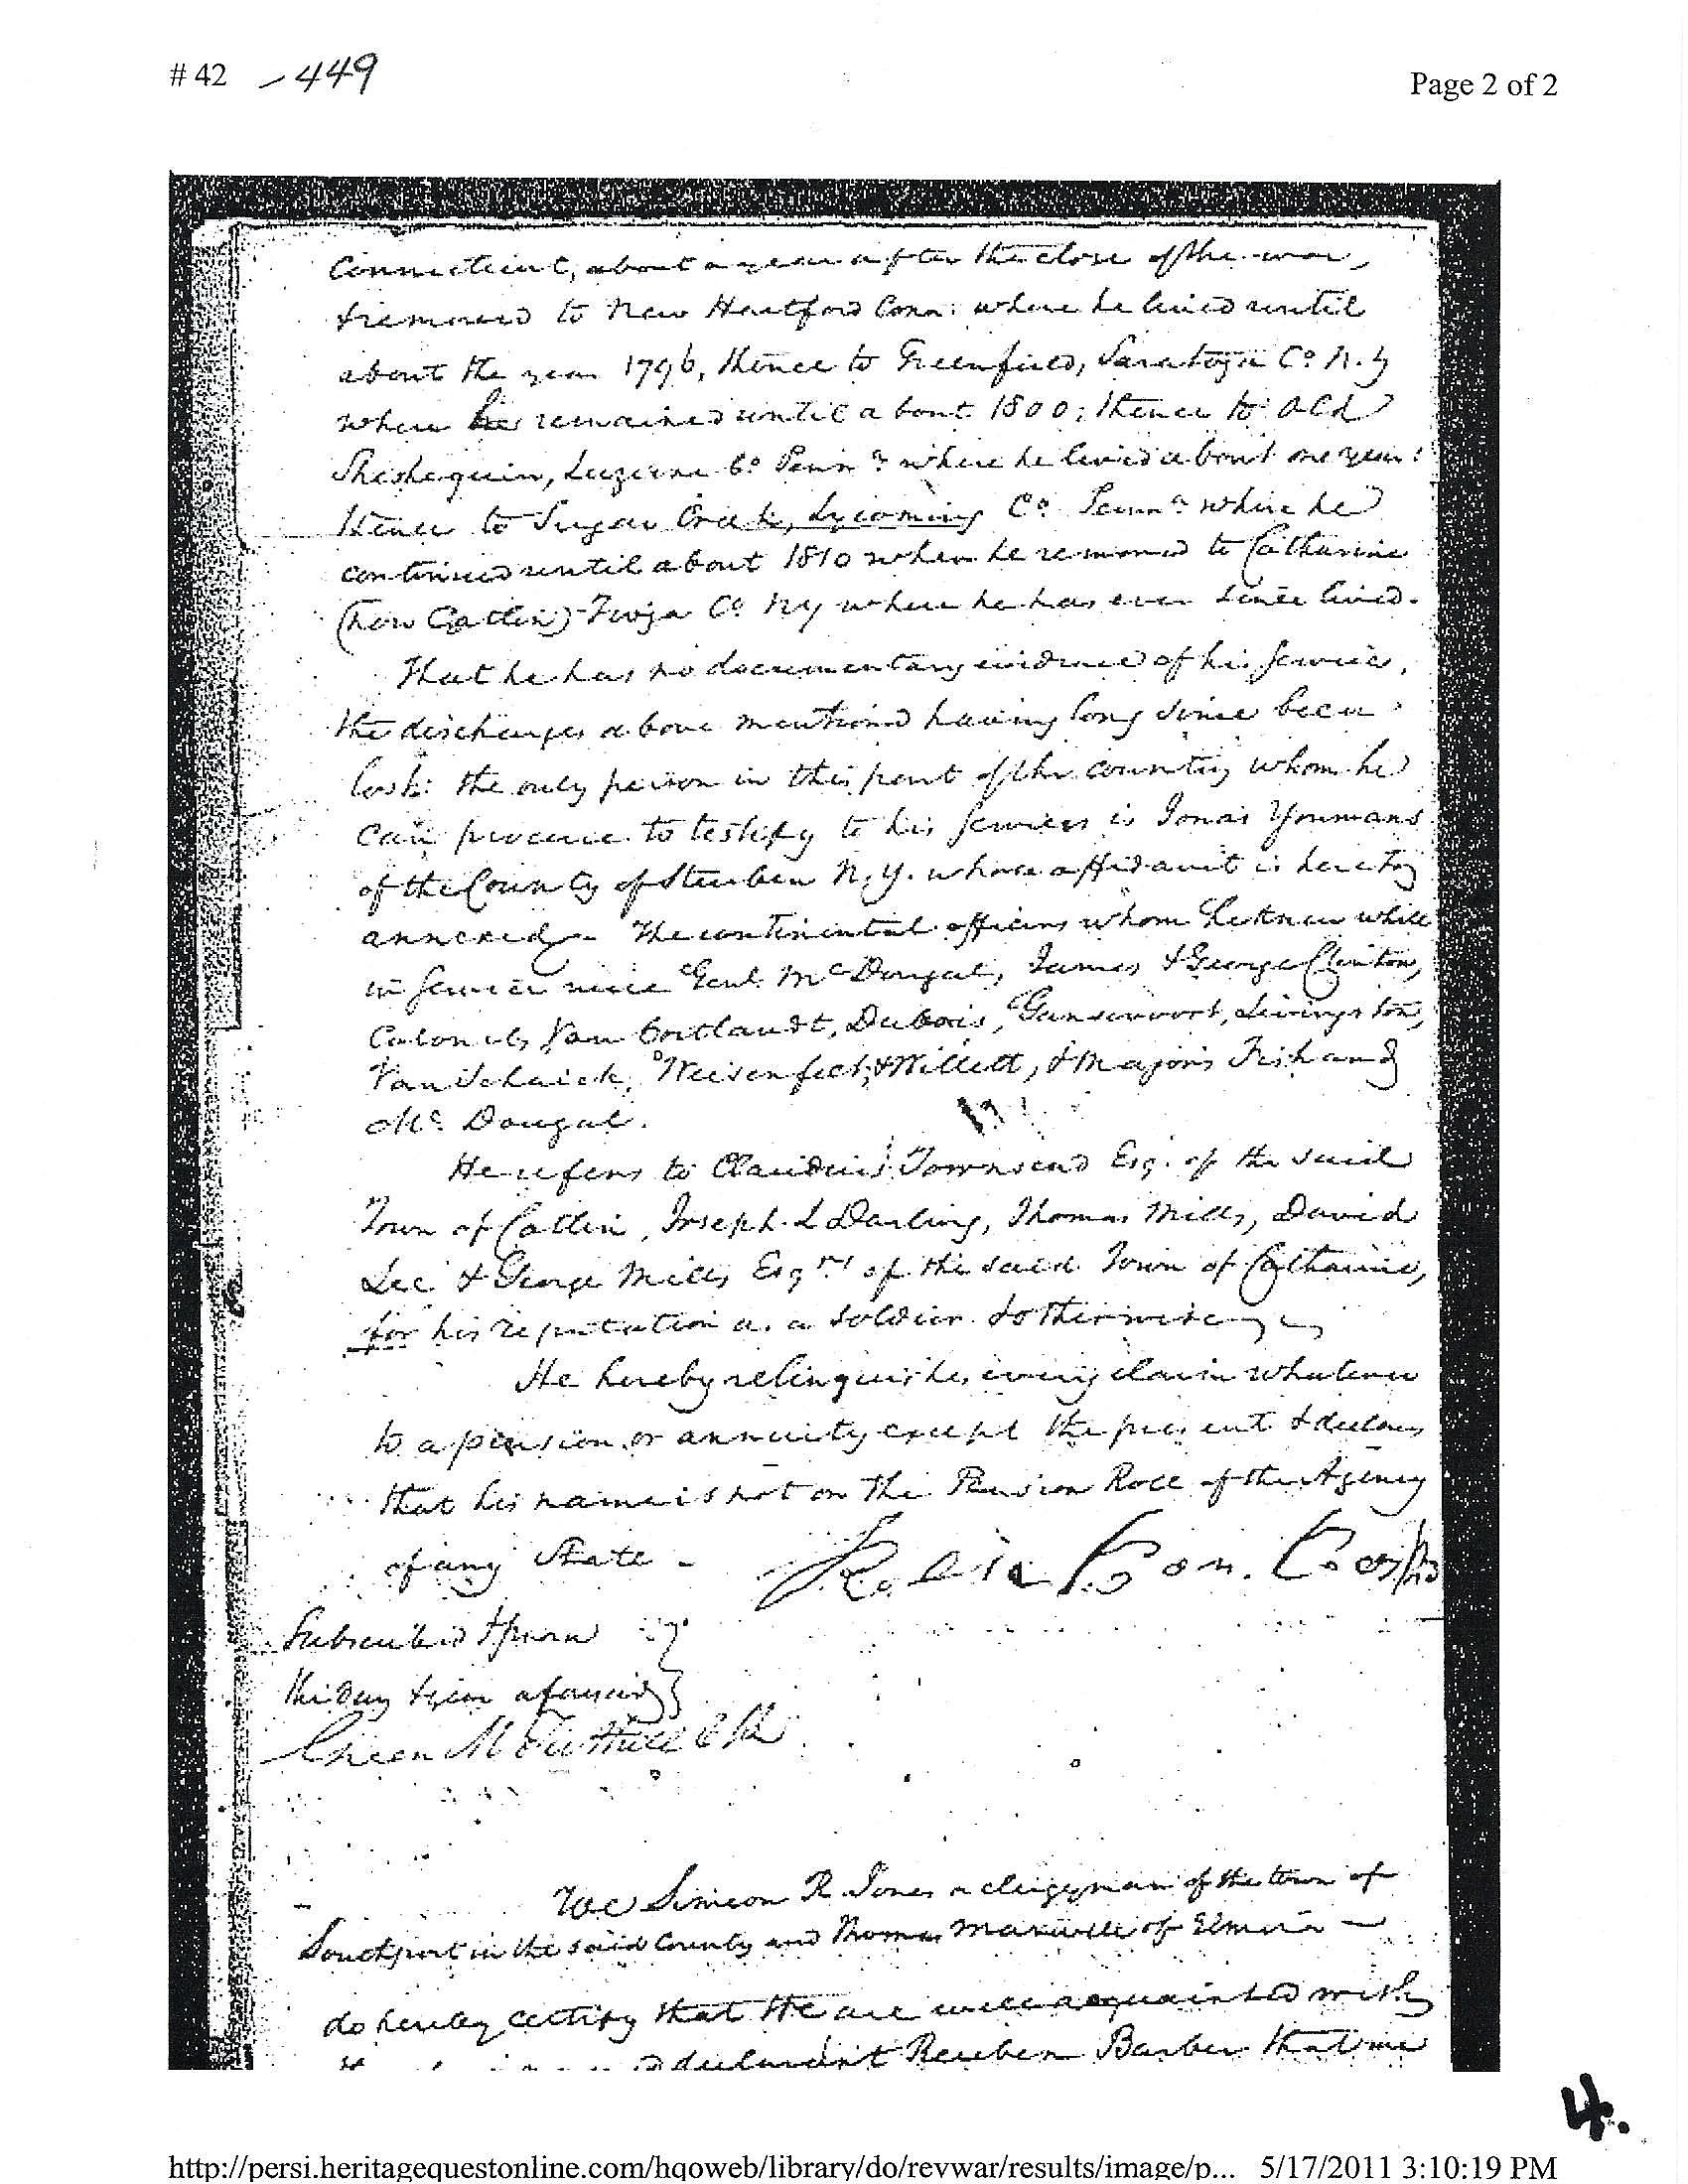 # 42 - 449
Page 2 of 2
Connecticut, about a year after the close of the war,
& removed to New Hartford Conn: where he lived until
about the year 1796, thence to Greenfield, Saratoga Co. N. Y
where he remained until about 1800; thence to Old
Sheshequin, Luzerne Co. Penna where he lived about one year:
thence to Sugar Creek, Lycoming Co. Penna where he
continued until about 1810 when he removed to Catharine
(now Catlin) Tioga Co. NY where he has ever since lived.
That he has no documentary evidence of his service,
the discharges above mentioned having long since been
lost: the only person in this part of the country whom he
can procure to testify to his services is Jonas Youmans
of the County of Steuben N. Y. whose affidavit is hereto
annexed - The continental officers whom he knew while
in service were Genl. McDougal, James & George Clinton,
Colonels Van Cortlandt, Dubois, Gansevoort, Livingston,
Van Schaick, Weisenfelt, & Willett, & Majors Fish and
Mc. Dougal.
He refers to Claudius Townsend Esq. of the said
Town of Catlin, Joseph L Darling, Thomas Mills, David
Lee & George Mills Esqrs of the said Town of Catharine,
for his reputation as a soldier & otherwise
He hereby relinquishes every claim whatever
to a pension or annuity except the present & declares
that his name is not on the Pension Roll of the Agency
of any State -
Subscribed & sworn
the day & year aforesaid
Green M Tuthill Clk
We Simeon R. Jones a clergyman of the town of
Southport in the said County and Thomas Maxwell of Elmira -
do hereby certify that we are well acquainted with
declarant Reuben Barber that we
4.
http://persi.heritagequestonline.com/hqoweb/library/do/revwar/results/image/p... 5/17/2011 3:10:19 PM